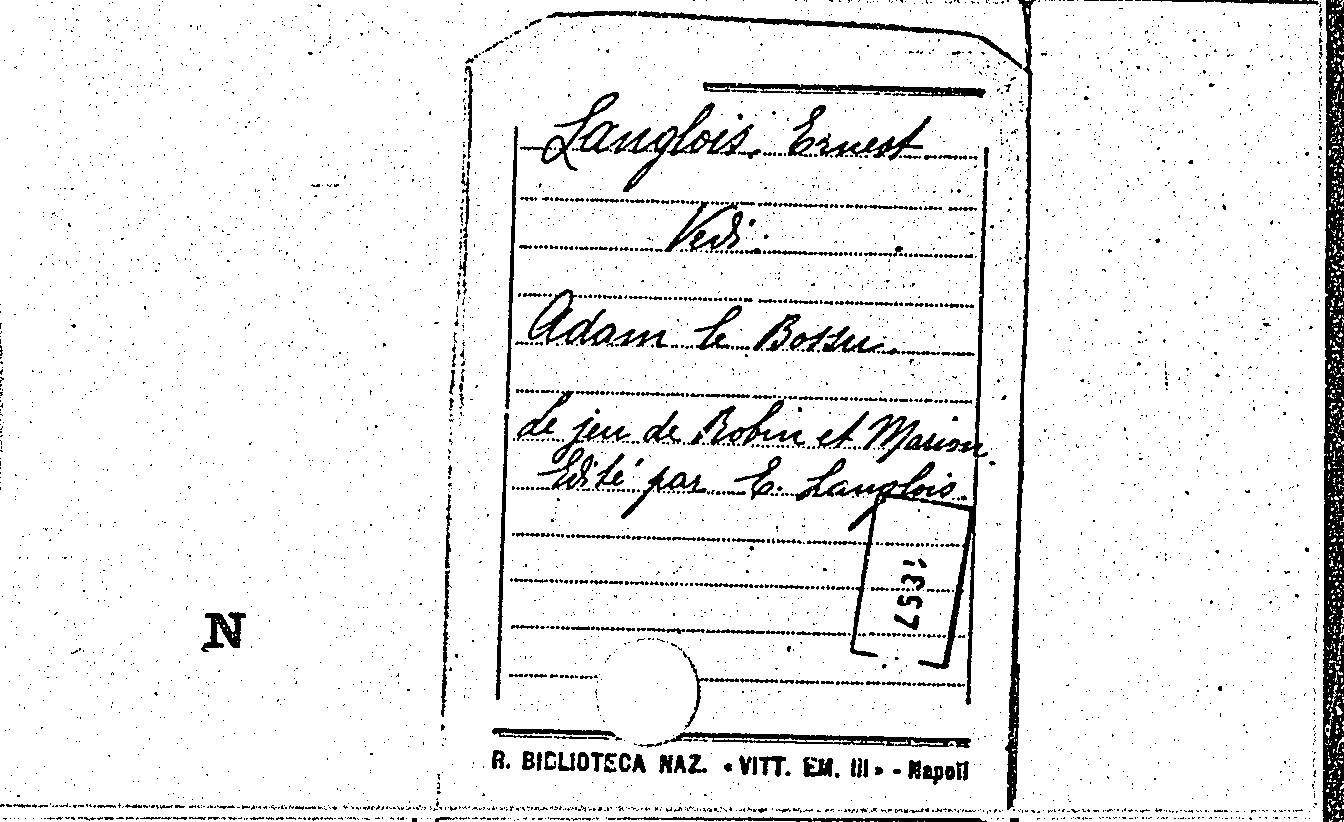 Langlois, Ernest
Vedi:
Adam le Bossu.
Le jeu de Robin et Marion.
Edité par E. Langlois.
N
R. BIBLIOTECA NAZ. «VITT. EM. III» - Napoli